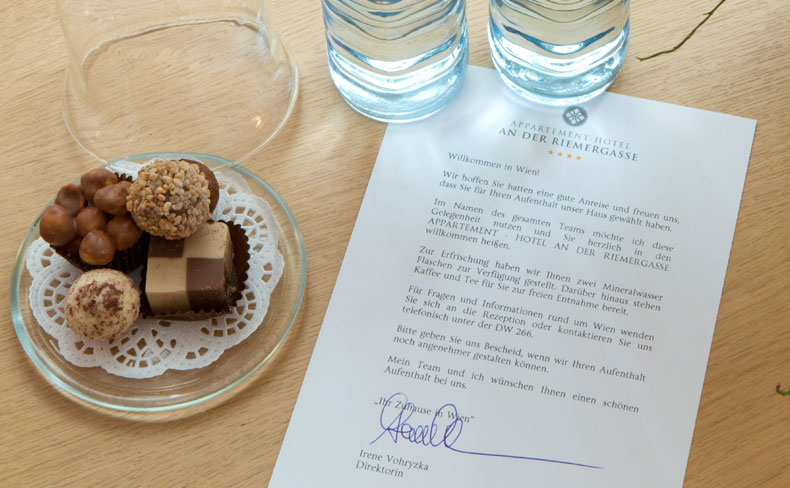 APPARTEMENT-HOTEL
AN DER RIEMERGASSE
Willkommen in Wien!
Wir hoffen Sie hatten eine gute Anreise und freuen uns,
dass Sie für Ihren Aufenthalt unser Haus gewählt haben.
Im Namen des gesamten Teams möchte ich diese
Gelegenheit nutzen und Sie herzlich in den
APPARTEMENT - HOTEL AN DER RIEMERGASSE
willkommen heißen.
Zur Erfrischung haben wir Ihnen zwei Mineralwasser
Flaschen zur Verfügung gestellt. Darüber hinaus stehen
Kaffee und Tee für Sie zur freien Entnahme bereit.
Für Fragen und Informationen rund um Wien wenden
Sie sich an die Rezeption oder kontaktieren Sie uns
telefonisch unter der DW 266.
Bitte geben Sie uns Bescheid, wenn wir Ihren Aufenthalt
noch angenehmer gestalten können.
Mein Team und ich wünschen Ihnen einen schönen
Aufenthalt bei uns.
„Ihr Zuhause in Wien"
Irene Vohryzka
Direktorin